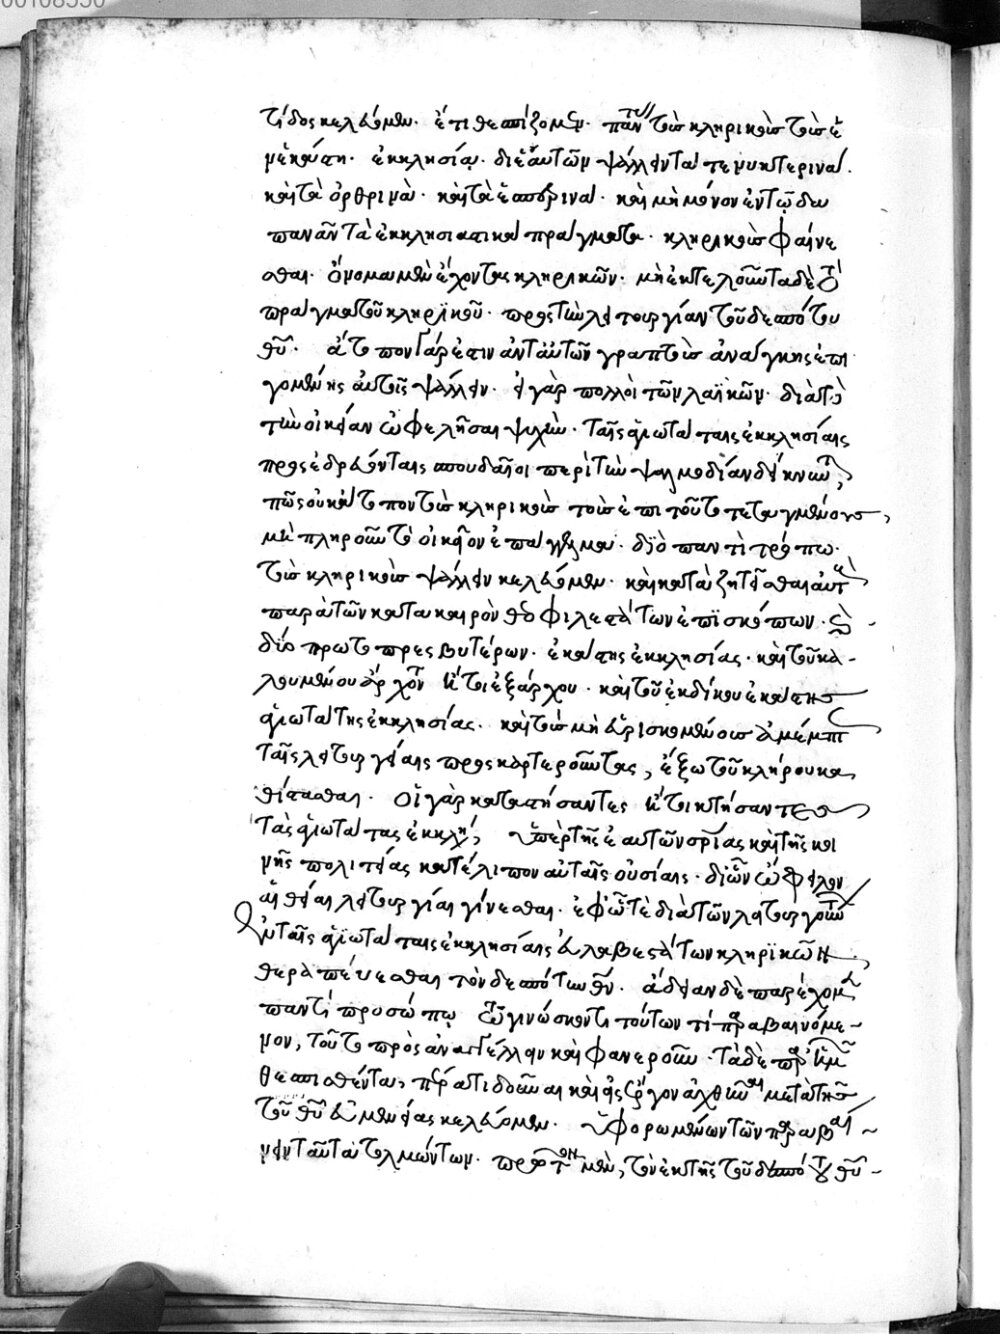 τίδος κελεύομεν. ἔτι θεσπίζομεν. πάντας τοὺς κληρικοὺς τοὺς ἐ
μὲ κάστη. ἐκκλησίᾳ. δι ἑαυτῶν ψάλλειν τά τε νυκτερινά.
καὶ τὰ ὀρθρινά. καὶ τὰ ἑσπερινά. καὶ μὴ μόνον ἐν τῷ δα
πανᾶν τὰ ἐκκλησιαστικὰ πράγματα. κληρικοὺς φαίνε
σθαι. ὄνομα μὲν ἔχοντας κληρικῶν. μὴ ἐκτελοῦντας δὲ τὸ
πρᾶγμα τοῦ κληρικοῦ. πρὸς τὴν λειτουργίαν τοῦ δεσπότου
θῦ. ἄτοπον γάρ ἐστιν ἀντ αὐτῶν γραπτοὺς ἀνάγκης ἐπει
γομένης αὐτοῖς ψάλλειν. εἰ γὰρ πολλοὶ τῶν λαϊκῶν. διὰ τὸ
τὴν οἰκείαν ὠφελῆσαι ψυχήν. ταῖς ἁγιωτάταις ἐκκλησίαις
προσεδρεύοντες σπουδαῖοι περὶ τὴν ψαλμωδίαν δείκνυνται,
πῶς οὐκ ἄτοπον τοὺς κληρικοὺς τοὺς ἐπὶ τοῦτο τεταγμένους,
μὴ πληροῦν τὸ οἰκεῖον ἐπάγγελμα. διὸ παντὶ τρόπῳ.
τοὺς κληρικοὺς ψάλλειν κελεύομεν. καὶ καταζητεῖσθαι αὐτοὺς
παρὰ τῶν κατὰ καιρὸν θεοφιλεστάτων ἐπισκόπων. καὶ
δύο πρωτοπρεσβυτέρων. ἑκάστης ἐκκλησίας. καὶ τοῦ κα-
λουμένου ἄρχοντος ἤτοι ἐξάρχου. καὶ τοῦ ἐκδίκου ἑκάστης
ἁγιωτάτης ἐκκλησίας. καὶ τοὺς μὴ εὑρισκομένους ἀμέμπτως
ταῖς λειτουργίαις προσκαρτεροῦντας, ἔξω τοῦ κλήρου κα
θίστασθαι. οἱ γὰρ καταστήσαντες ἤτοι κτήσαντες
τὰς ἁγιωτάτας ἐκκλησίας, ὑπὲρ τῆς ἑαυτῶν σρίας καὶ τῆς κοι
νῆς πολιτείας κατέλιπον αὐταῖς οὐσίας. δι ὧν ὤφειλον
αἱ θεῖαι λειτουργίαι γίνεσθαι. ἐφ ᾧ τε διὰ τῶν λειτουργούντων
ἐν ταῖς ἁγιωτάταις ἐκκλησίαις εὐλαβεστάτων κληρικῶν,
θεραπεύεσθαι τὸν δεσπότην θν. ἄδειαν δὲ παρέχομεν
παντὶ προσώπῳ τῷ γινώσκοντι τούτων τὶ παραβαινόμε-
μον, τοῦτο προσαναγγέλλειν καὶ φανεροῦν. τὰ δὲ παρ ἡμῶν
θεσπισθέντα, παραδιδόναι καὶ εἰς ἔργον ἀχθῆναι μετὰ τῆς
τοῦ θῦ εὐμενείας κελεύομεν. ὑφορωμένων τῶν παραβαί-
νειν ταῦτα τολμώντων. πρῶτον μέν, τὸν ἐκ τῆς τοῦ δεσπότου θῦ-